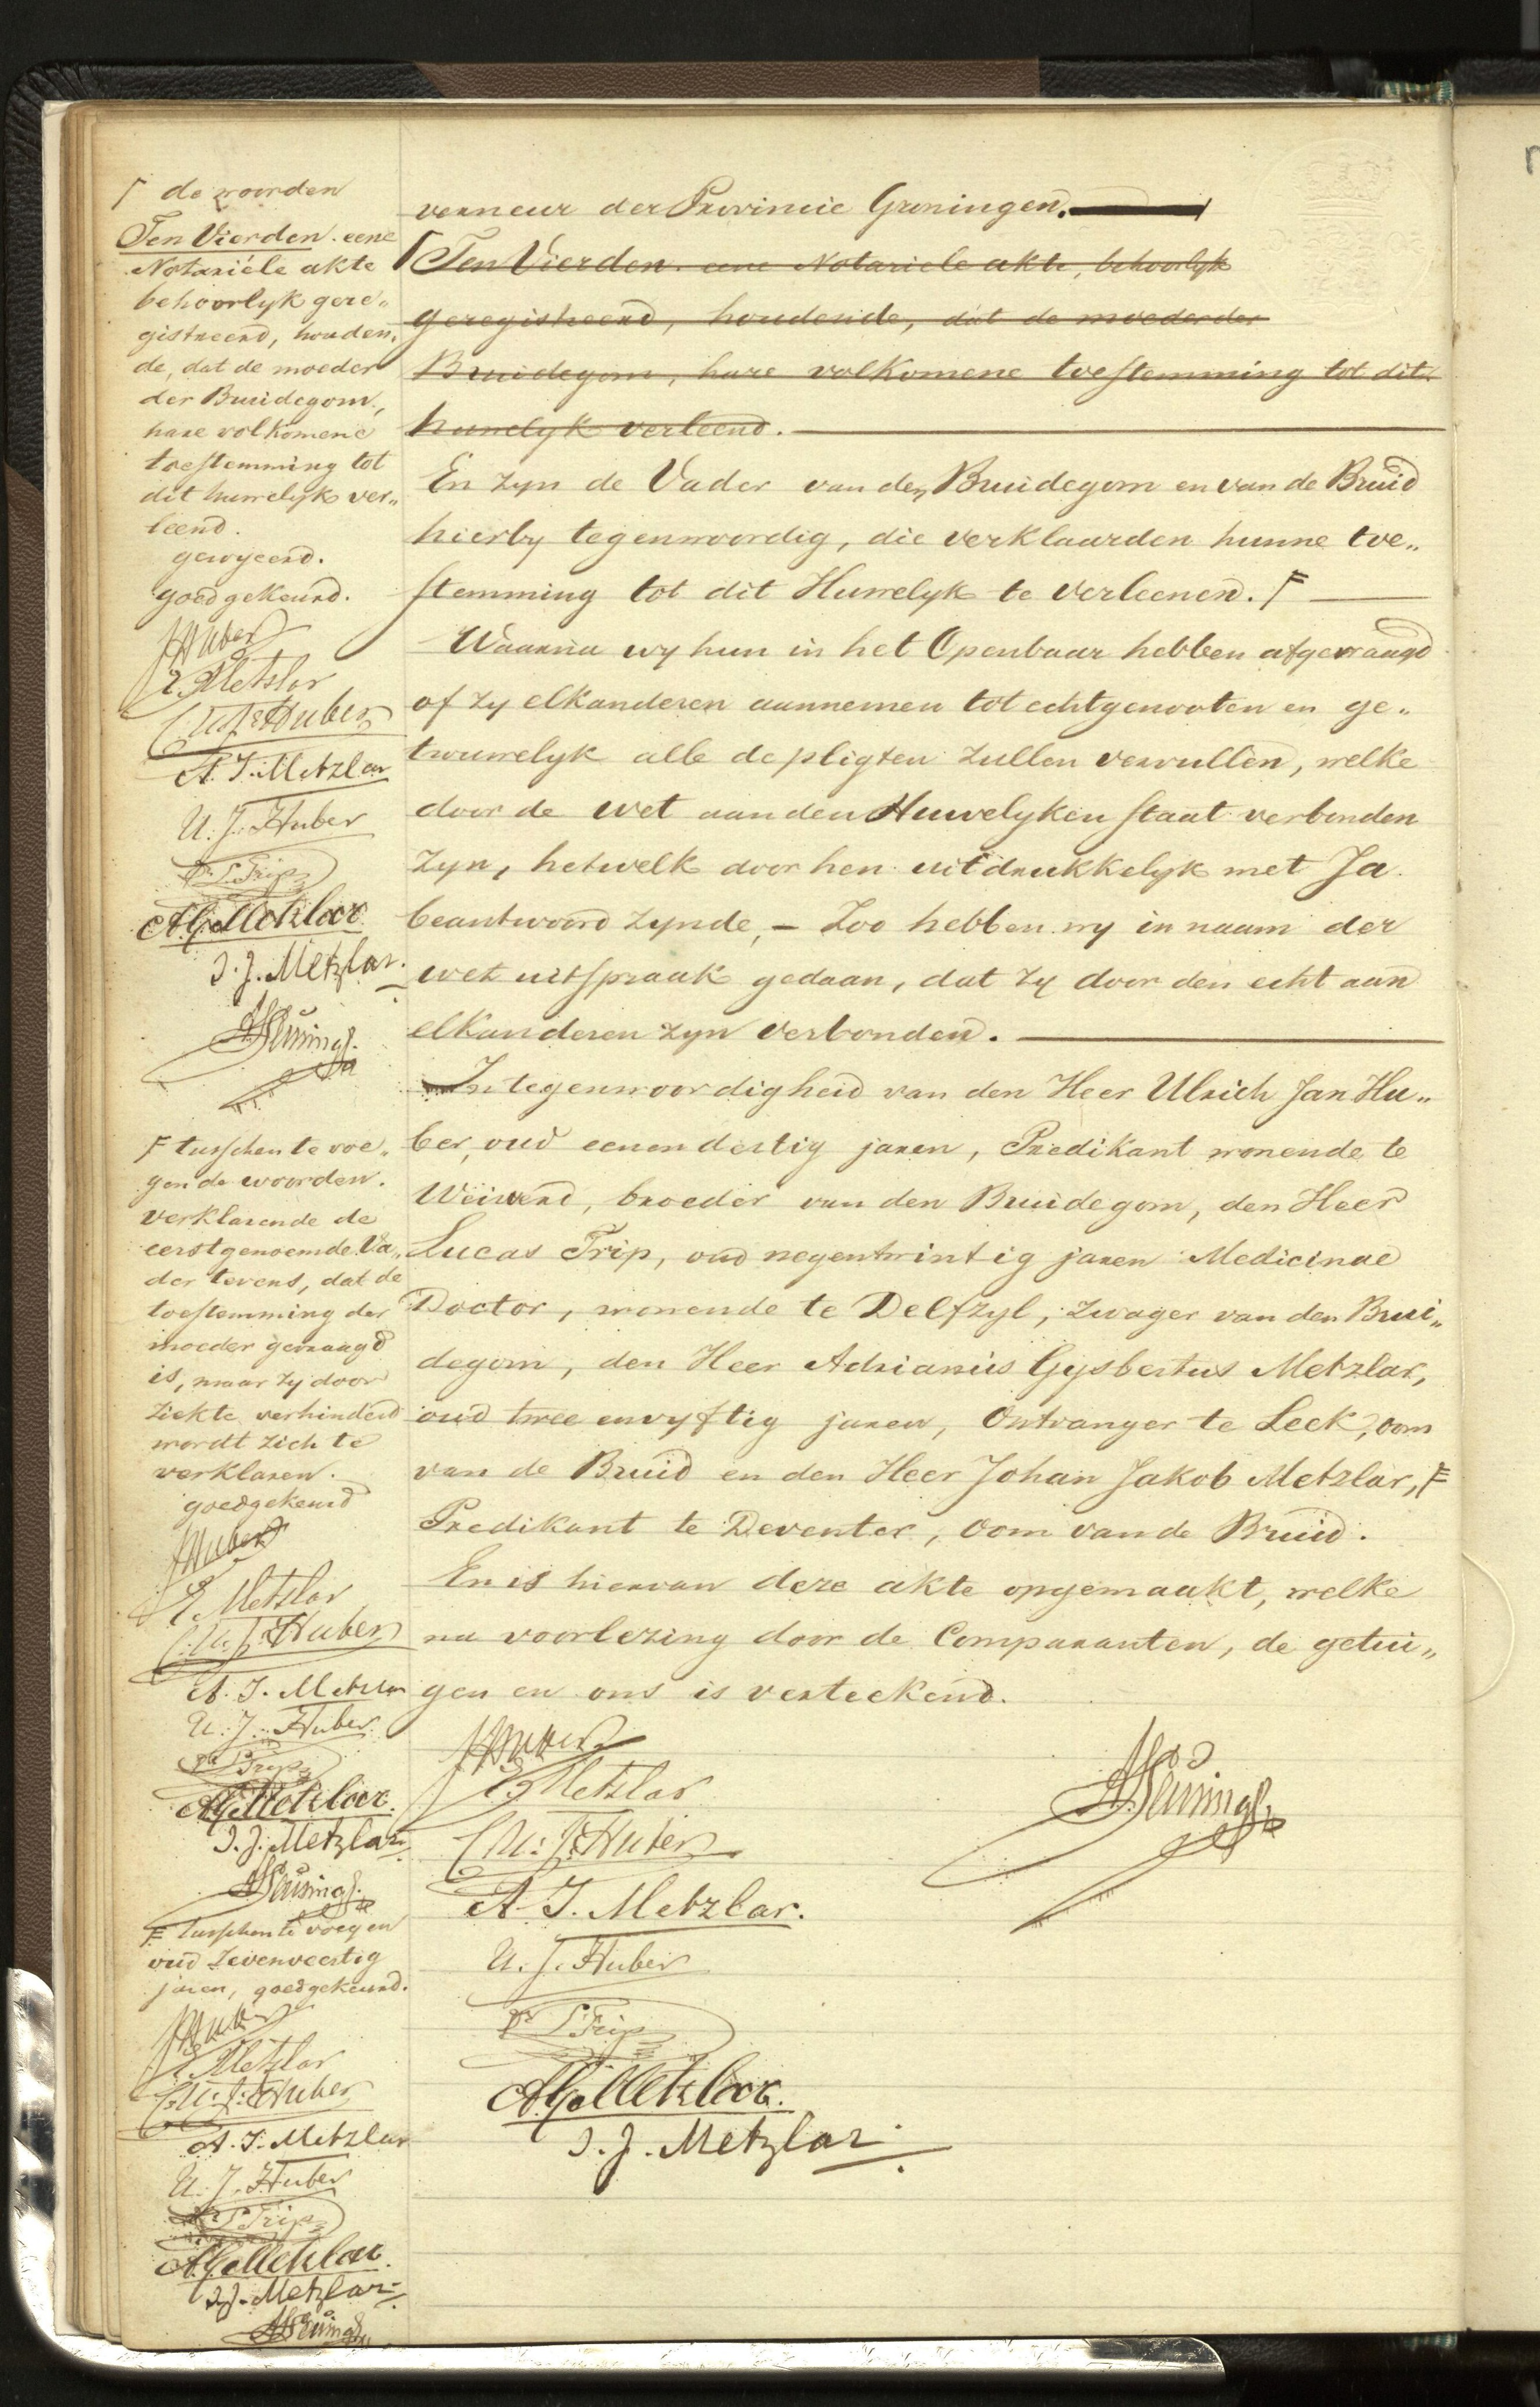 verneur der Provincie Groningen.
Ten Vierden. eene Notariele akte, behoorlyk
geregistreerd, houdende, dat de moeder der
Bruidegom, hare volkomene toestemming tot dit
huwelyk verleend.
En zyn de Vader van den Bruidegom en van de Bruid
hierby tegenwoordig, die verklaarden hunne toe„
stemming tot dit Huwelyk te verleenen. F
Waarna wy hun in het Openbaar hebben afgevraagd
of zy elkanderen aannemen tot echtgenooten en ge„
trouwelyk alle de pligten zullen vervullen, welke
door de wet aan den Huwelyken staat verbonden
zyn, hetwelk door hen uitdrukkelyk met Ja
beantwoord zynde, - Zoo hebben wy in naam der
wet uitspraak gedaan, dat zy door den echt aan
elkanderen zyn verbonden.
In tegenwoordigheid van den Heer Ulrich Jan Hu„
ber, oud eenendertig jaren, Predikant wonende te
Weiwerd, broeder van den Bruidegom, den Heer
Lucas Trip, oud negentwintig jaren Medicinae
Doctor, wonende te Delfzyl, zwager van den Brui„
degom, den Heer Adrianus Gysbertus Metzlar,
oud twee envyftig jaren, Ontvanger te Leek, oom
van de Bruid en den Heer Johan Jakob Metzlar, F
Predikant te Deventer, oom van de Bruid.
En is hiervan deze akte opgemaakt, welke
na voorlezing door de Comparanten, de getui„
gen en ons is verteekend.
JHuber
E Metzlar
U. J. Huber
A. J. Metzlar.
U. J. Huber
Dr L Trip
A G Metzlar.
J. J. Metzlar.
Γ de woorden
Ten Vierden. eene
Notariële akte
behoorlyk gere„
gistreerd, houden„
de, dat de moeder
der Bruidegom,
hare volkomene
toestemming tot
dit huwelyk ver„
leend.
geroyeerd.
goedgekeurd.
JHuber
E Metzlar
U. J. Huber
A. J. Metzlar
U. J. Huber
Dr L. Trip
A G Metzlar
J. J. Metzlar.
F tusschen te voe„
gen de woorden.
verklarende de
eerstgenoemde Va„
der tevens, dat de
toestemming der
moeder gevraagd
is, maar zy door
ziekte verhinderd
wordt zich te
verklaren.
goedgekeurd
JHuber
E Metzlar
U. J. Huber
A. J. Metzlar
U. J. Huber
Dr L Trip
A G Metzlar.
J. J. Metzlar
F tusschen te voegen
oud zevenveertig
jaren, goedgekeurd.
JHuber
E Metzlar
U. J. Huber
A. J. Metzlar
U. J. Huber
Dr L Trip
A G Metzlar.
J. J. Metzlar